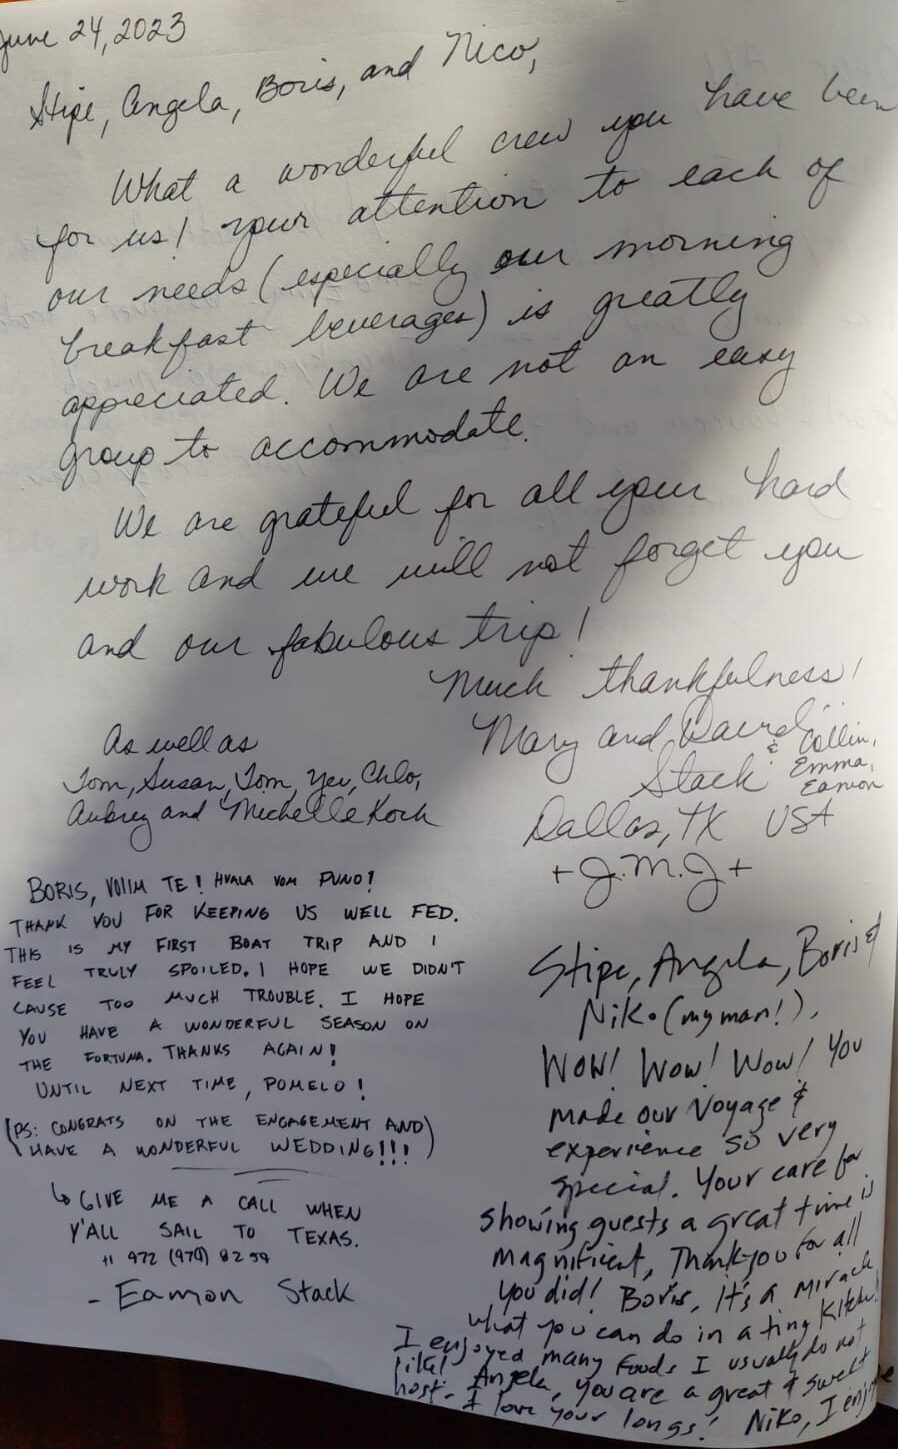 June 24, 2023
Stipe, Angela, Boris, and Nico,
What a wonderful crew you have been
for us! Your attention to each of
our needs (especially our morning
breakfast beverages) is greatly
appreciated. We are not an easy
group to accommodate.
We are grateful for all your hard
work and we will not forget you
and our fabulous trip!
Much thankfulness!
Mary and David
& Collin,
Stack Emma,
Eamon
Dallas, TX USA
+J.M.J+
As well as
Tom, Susan, Tom, Yev, Chlo,
Aubrey and Michelle Koch
BORIS, VOLIM TE! HVALA VAM PUNO!
THANK YOU FOR KEEPING US WELL FED.
THIS IS MY FIRST BOAT TRIP AND I
FEEL TRULY SPOILED. I HOPE WE DIDN'T
CAUSE TOO MUCH TROUBLE. I HOPE
YOU HAVE A WONDERFUL SEASON ON
THE FORTUNA. THANKS AGAIN!
UNTIL NEXT TIME, POMELO!
(PS: CONGRATS ON THE ENGAGEMENT AND)
HAVE A WONDERFUL WEDDING!!!
↳ GIVE ME A CALL WHEN
Y'ALL SAIL TO TEXAS.
+1 972 (974) 8259
- Eamon Stack
Stipe, Angela, Boris &
Niko (my man!),
WOW! Wow! Wow! You
made our Voyage &
experience so very
special. Your care for
showing guests a great time is
magnificent, Thank you for all
you did! Boris, It's a miracle
what you can do in a tiny Kitchen!
I enjoyed many foods I usually do not
like! Angela, you are a great & sweet
host. I love your longs! Niko, I enjoy